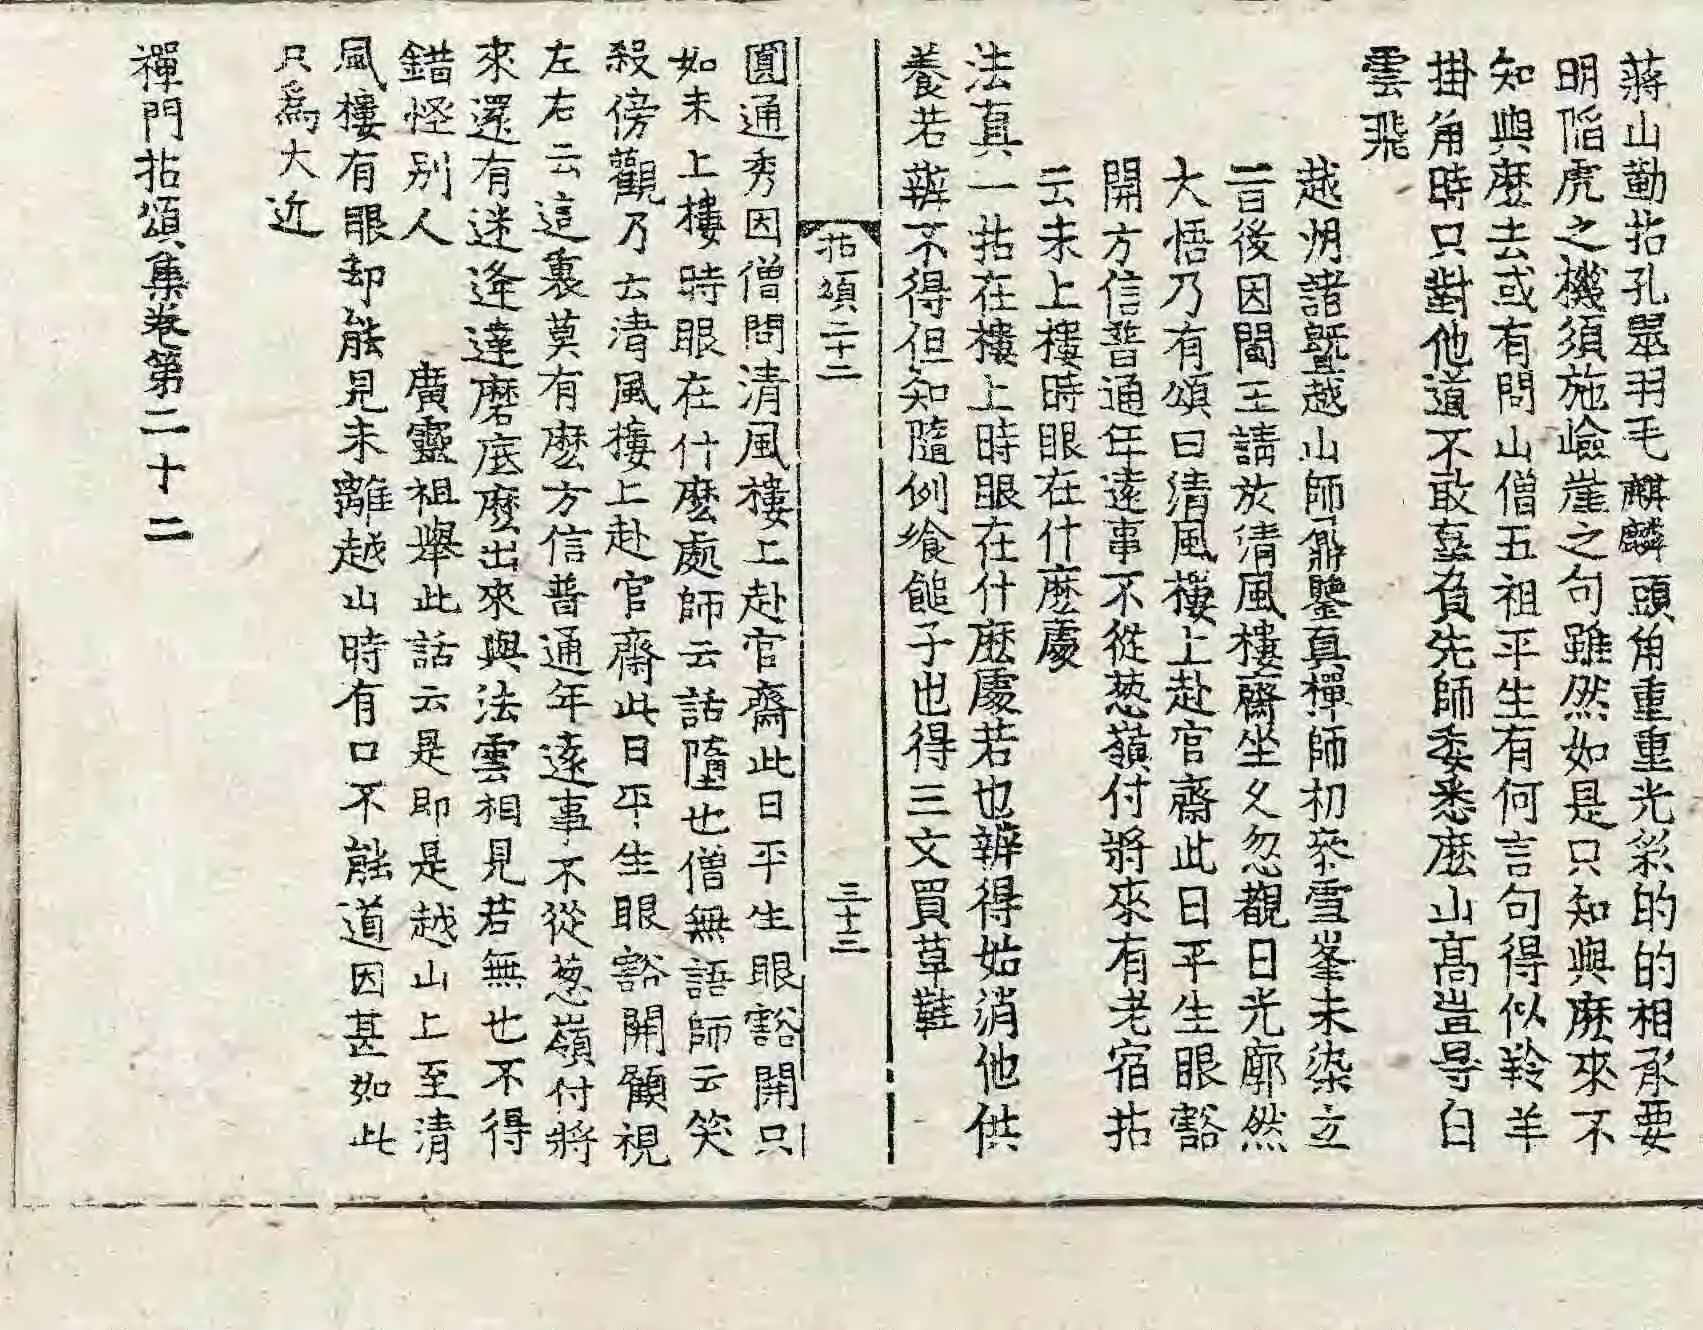 蔣山勤拈孔翠羽毛麒麟頭角重重光彩的的相承要
明陷虎之機須施嶮崖之句雖然如是只知與麽來不
知與麽去或有問山僧五祖平生有何言句得似羚羊
掛角時只對他道不敢辜負先師委悉麽山高豈㝵白
雲飛
越州諸暨越山師鼐鑒真禪師初叅雪峯未染立
旨後因閩王請於清風樓齋坐久忽覩日光廓然
大悟乃有頌曰清風樓上赴官齋此日平生眼豁
開方信普通年遠事不從葱嶺付將來有老宿拈
云未上樓時眼在什麽處
法真一拈在樓上時眼在什麽處若也辨得始消他供
養若辨不得但知隨例飡䭔子也得三文買草鞋
拈頌二十二 三十三
圓通秀因僧問清風樓上赴官齋此日平生眼豁開只
如未上樓時眼在什麽處師云話墮也僧無語師云笑
殺傍觀乃云清風樓上赴官齋此日平生眼豁開顧視
左右云這裏莫有麽方信普通年遠事不從葱嶺付將
來還有迷逢達磨底麽出來與法雲相見若無也不得
錯怪别人 廣靈祖舉此話云是即是越山上至清
風樓有眼却能見未離越山時有口不能道因甚如此
只爲大近
禪門拈頌集卷第二十二